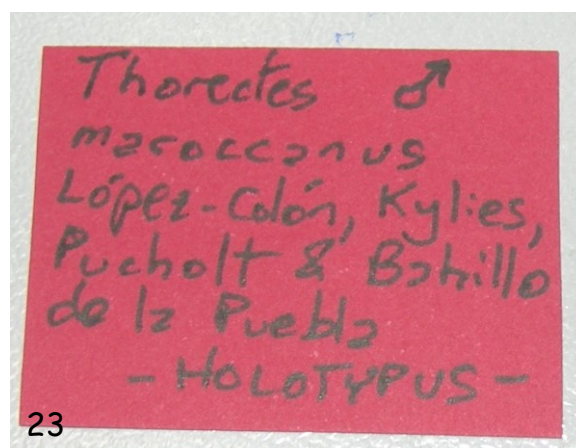 Thorectes ♂
maroccanus
López-Colón, Kylies,
Pucholt & Bahillo
de la Puebla
- HOLOTYPUS -
23